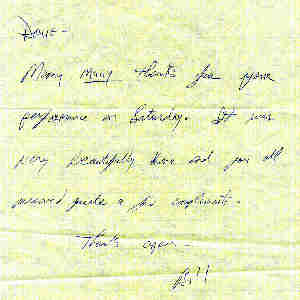 Dave -
Many many thanks for your
performance on Saturday. It was
very beautifully done and you all
received quite a few compliments.
Thanks again -
Bill